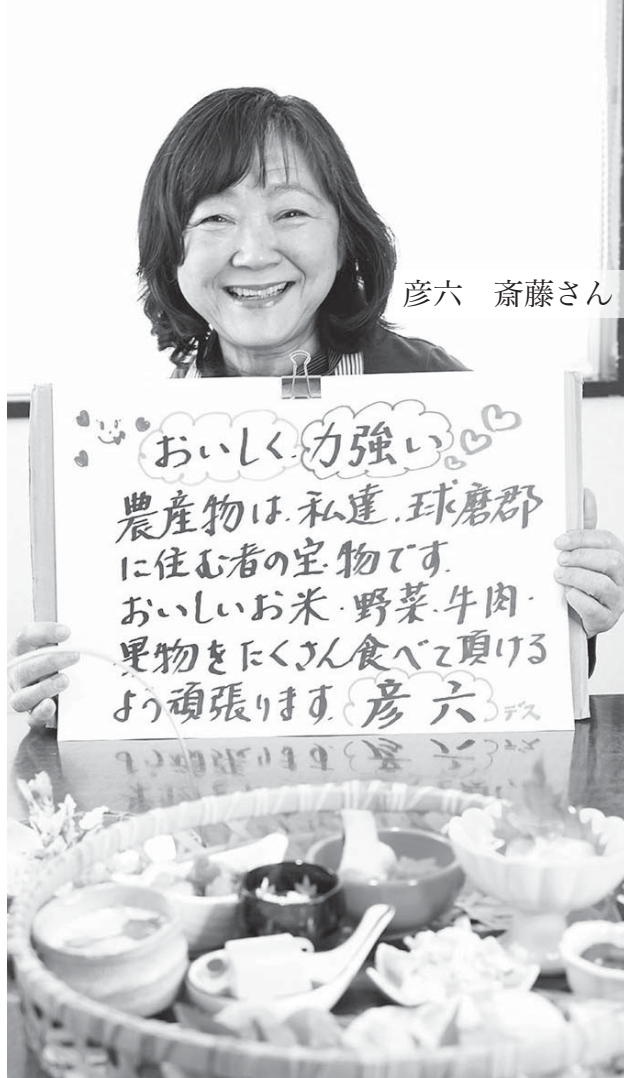 彦六　斎藤さん
おいしく.力強い
農産物は.私達.球磨郡
に住む者の宝.物です.
おいしいお米・野菜・牛肉・
果物をたくさん食べて頂ける
よう頑張ります.彦六デス